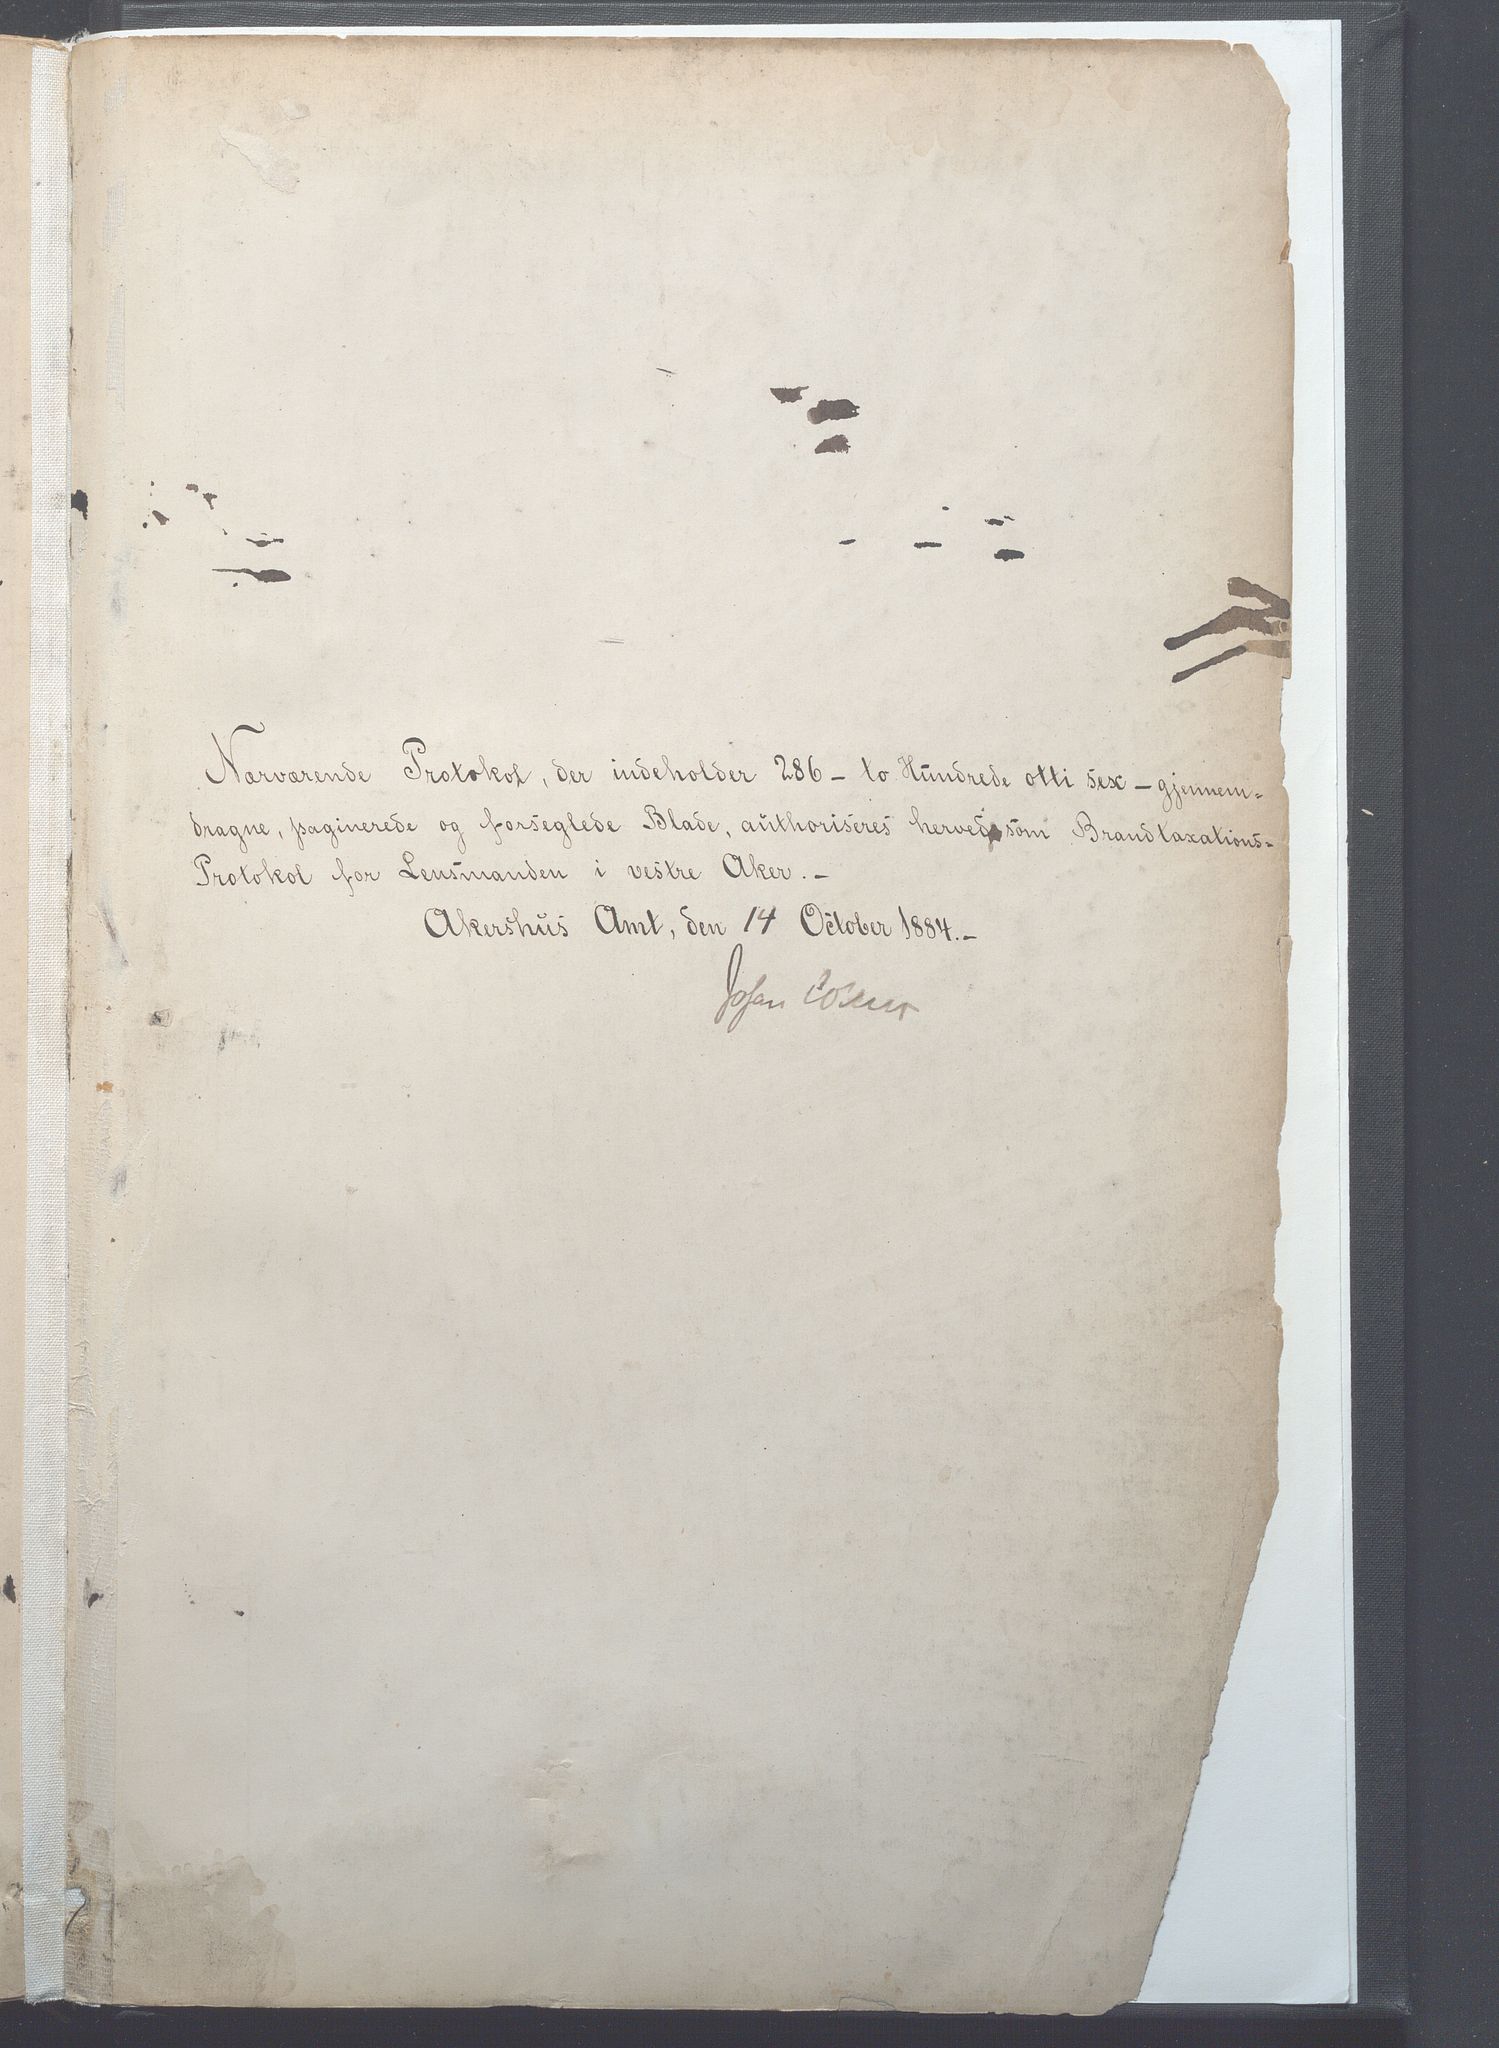 Nærværende Protokol, der indeholder 286 – to Hundrede otti sex – gjennem-
dragne, paginerede og forseglede Blade, authoriseres herved som Brandtaxations-
Protokol for Lensmanden i vestre Aker. –
Akershus Amt, den 14 October 1884. –
Johan